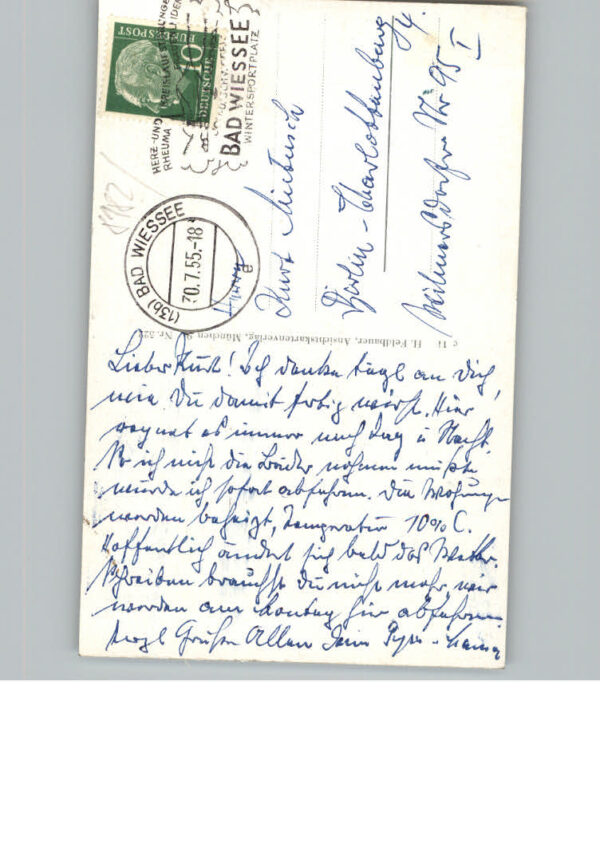 DEUTSCHE
BUNDESPOST
10
HERZ- UND
RHEUMA
BAD WIESSEE
WINTERSPORTPLATZ
(13b) BAD WIESSEE
30.7.55.-18
e
Herrn
Kurt
Berlin-Charlottenburg 4.
Wilmersdorfer Str 95 I
H. Feldbauer, Ansichtskartenverlag, München 9, Nr.
Lieber Kurt! Ich denke tägl an Dich,
wie Du damit fertig wirst. Hier
regnet es immer noch Tag u Nacht.
Wo ich nicht die Bäder nehmen müsste
würde ich sofort abfahren. Die Wohnungen
werden beheizt, Temperatur 10% C.
Hoffentlich ändert sich bald das Wetter.
Schreiben brauchst du nicht mehr, wir
werden am Montag hier abfahren
Herzl Grüße Allen Dein